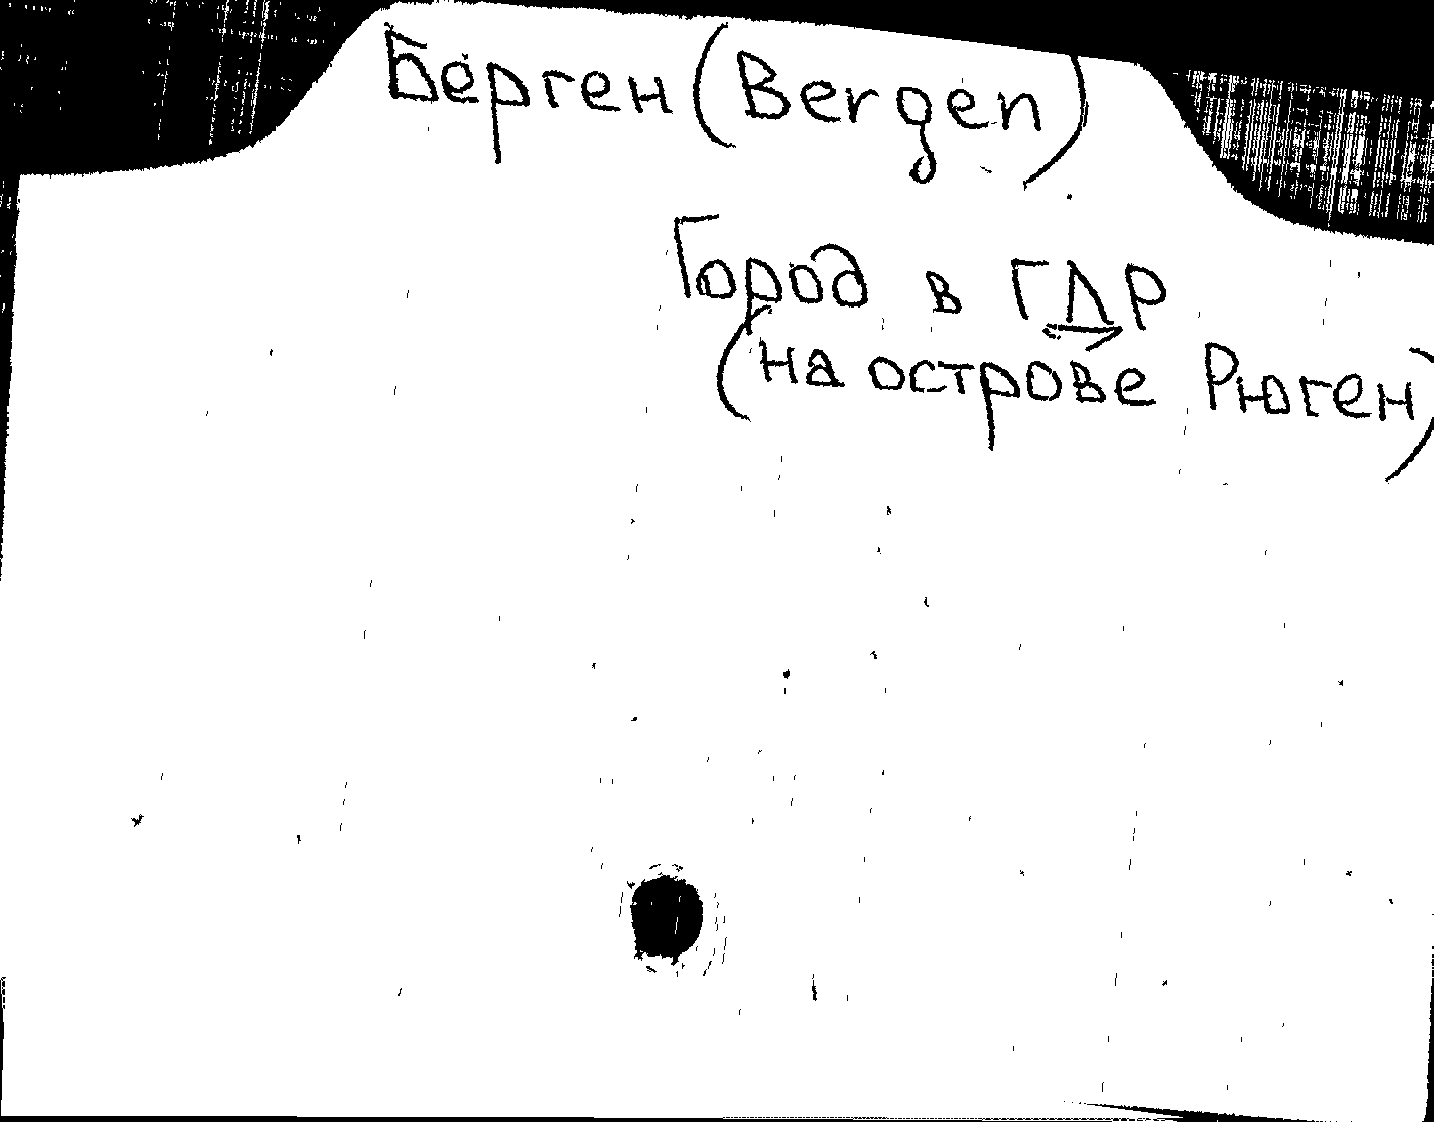 Берген (Bergen)
Город в ГДР
(на острове Рюген)